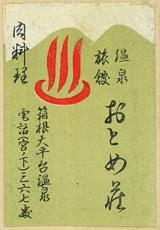 温泉
旅館
おとめ荘
肉料理
箱根大平台温泉
電話(宮ノ下)三六七番